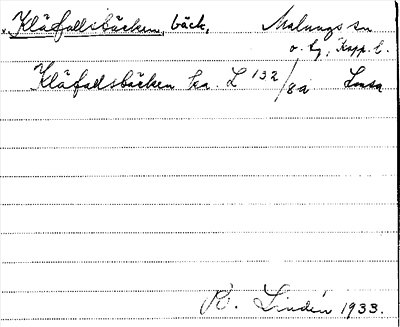 Kläfallsbäcken, bäck, Malungs sn
o. lg, Kopp. l.
Kläfallsbäcken ka. L 132/82
R. Lindén 1933.